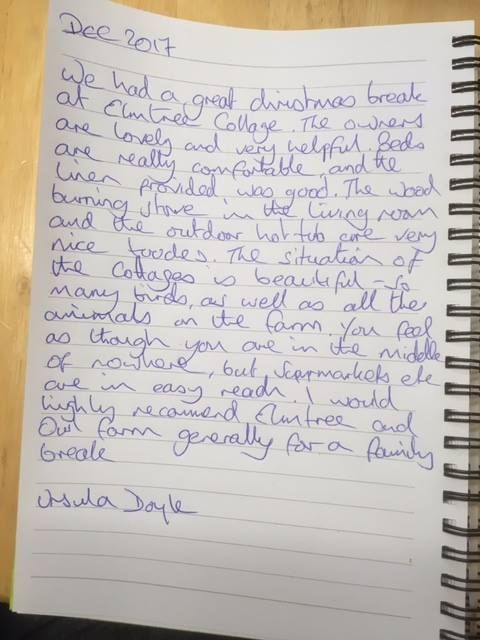 Dec 2017
We had a great christmas break
at Elmtree Cottage. The owners
are lovely and very helpful. Beds
are really comfortable, and the
linen provided was good. The wood
burning stove in the living room
and the outdoor hot tub are very
nice touches. The situation of
the cottages is beautiful - so
many birds, as well as all the
animals on the farm. You feel
as though you are in the middle
of nowhere, but supermarkets etc
are in easy reach. I would
highly recomend Elmtree and
Owl farm generally for a family
break
Ursula Doyle